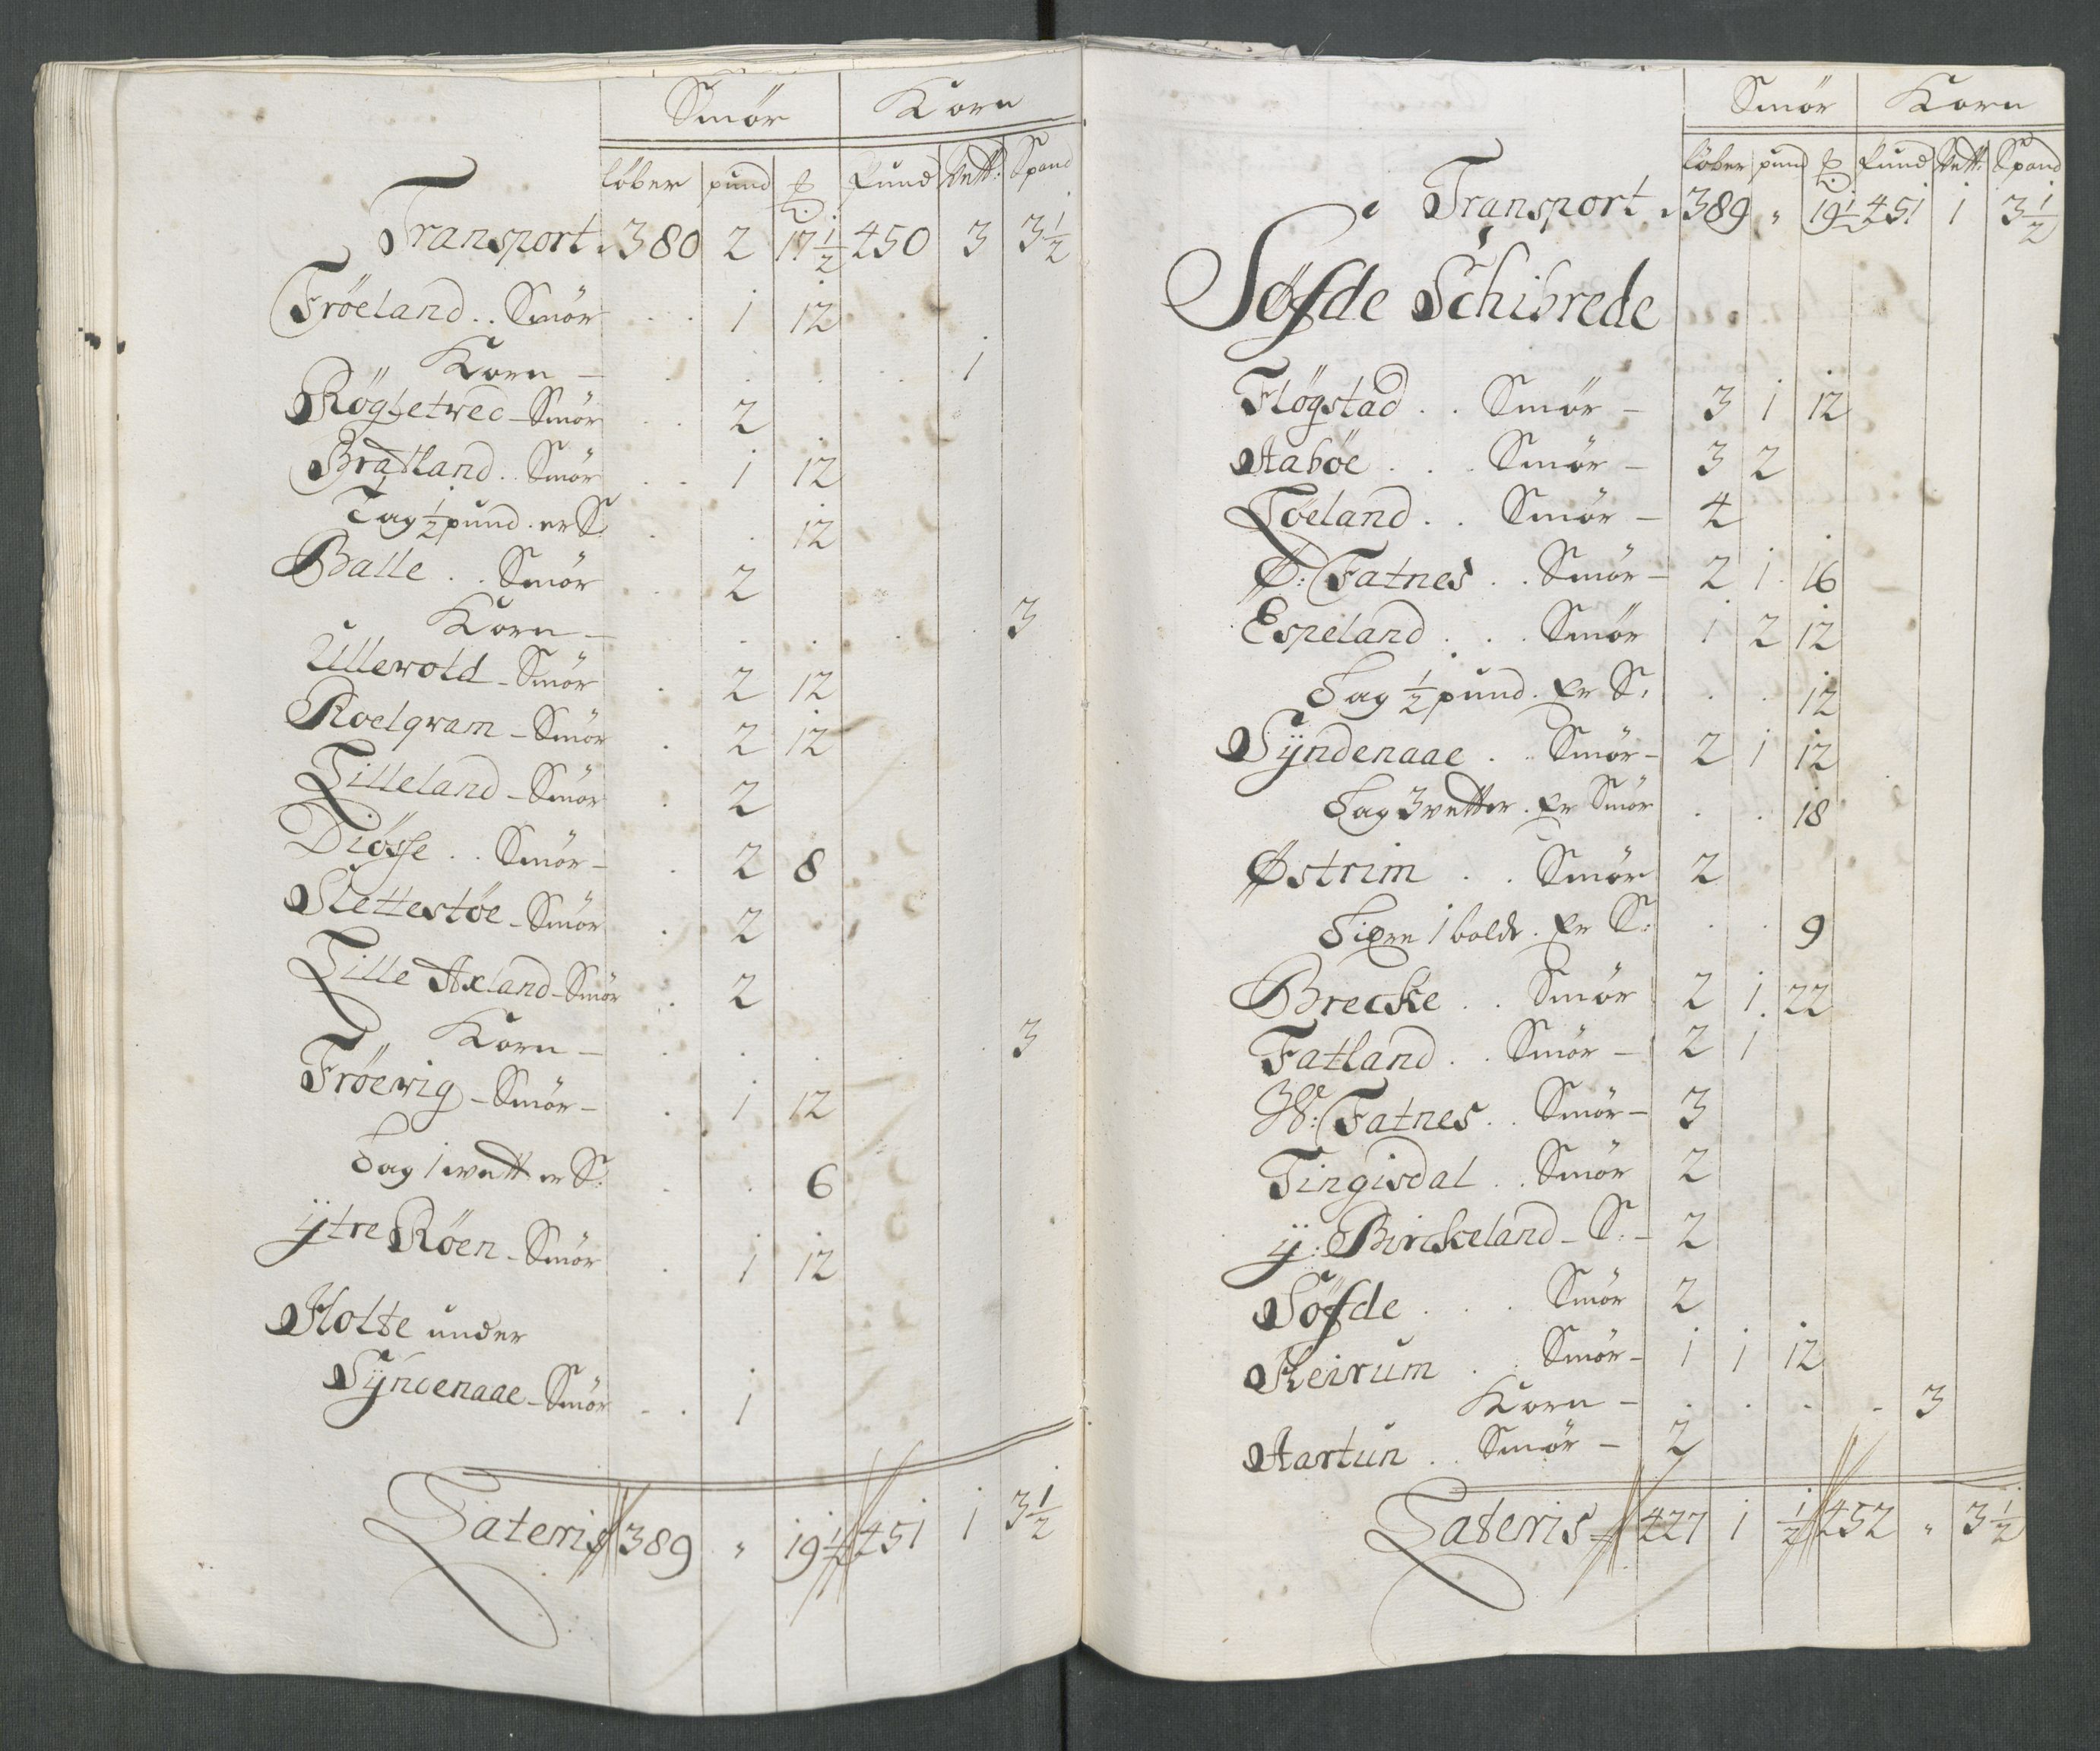 Smör Korn
löber pund ℔ Pund Vett: Spand
Transport. 380 2 17½ 450 3 3½
Fröeland.. Smör . . 1 12
Korn — . . . . . 1
Rögletved - Smör . . 2
Bratland.. Smör . . 1 12
Tag ½ pund. er S: . . 12
Balle . . Smör . . 2
Korn — . . . . . 3
Ullewold - Smör . 2 12
Roelqvam - Smör . 2 12
Lilleland - Smör . 2
Diösse . . Smör - . 2 8
Slettestöe - Smör . 2
Lille Axland - Smör . 2
Korn — . . . . . 3
Fröevig - Smör - . 1 12
Tag 1 vett er S: . . 6
ÿtre Röen - Smör . 1 12
Holte under
Sÿndenaae - Smör . . 1
Lateris 389 " 19½ 451 1 3½
Smör Korn
löber pund ℔ Pund Vett: Spand
Transport. 389 " 19½ 451 1 3½
Söfde Schibrede
Flögstad . . Smör — 3 1 12
Aaböe . . . Smör — 3 2
Töeland . . Smör — 4
Ø: Fatnes . . Smör — 2 1 16
Espeland . . . Smör 1 2 12
Tag ½ pund. Er S: . . 12
Sÿndenaae . .. Smör — 2 1 12
Tag 3 vetter. Er Smör . . 18
Østrim . . Smör 2
. Er S: . . 9
Brecke . . Smör 2 1 22
Fatland . . Smör — 2 1
W: Fatnes . . Smör — 3
Tingisdal . . Smör 2
ÿ: Birckeland - S: - 2
Söfde . . . Smör 2
Reirum . . Smör - 1 1 12
Korn — . . . . 3
Aartun . . Smör — 2
Lateris 427 1 ½ 452 " 3½